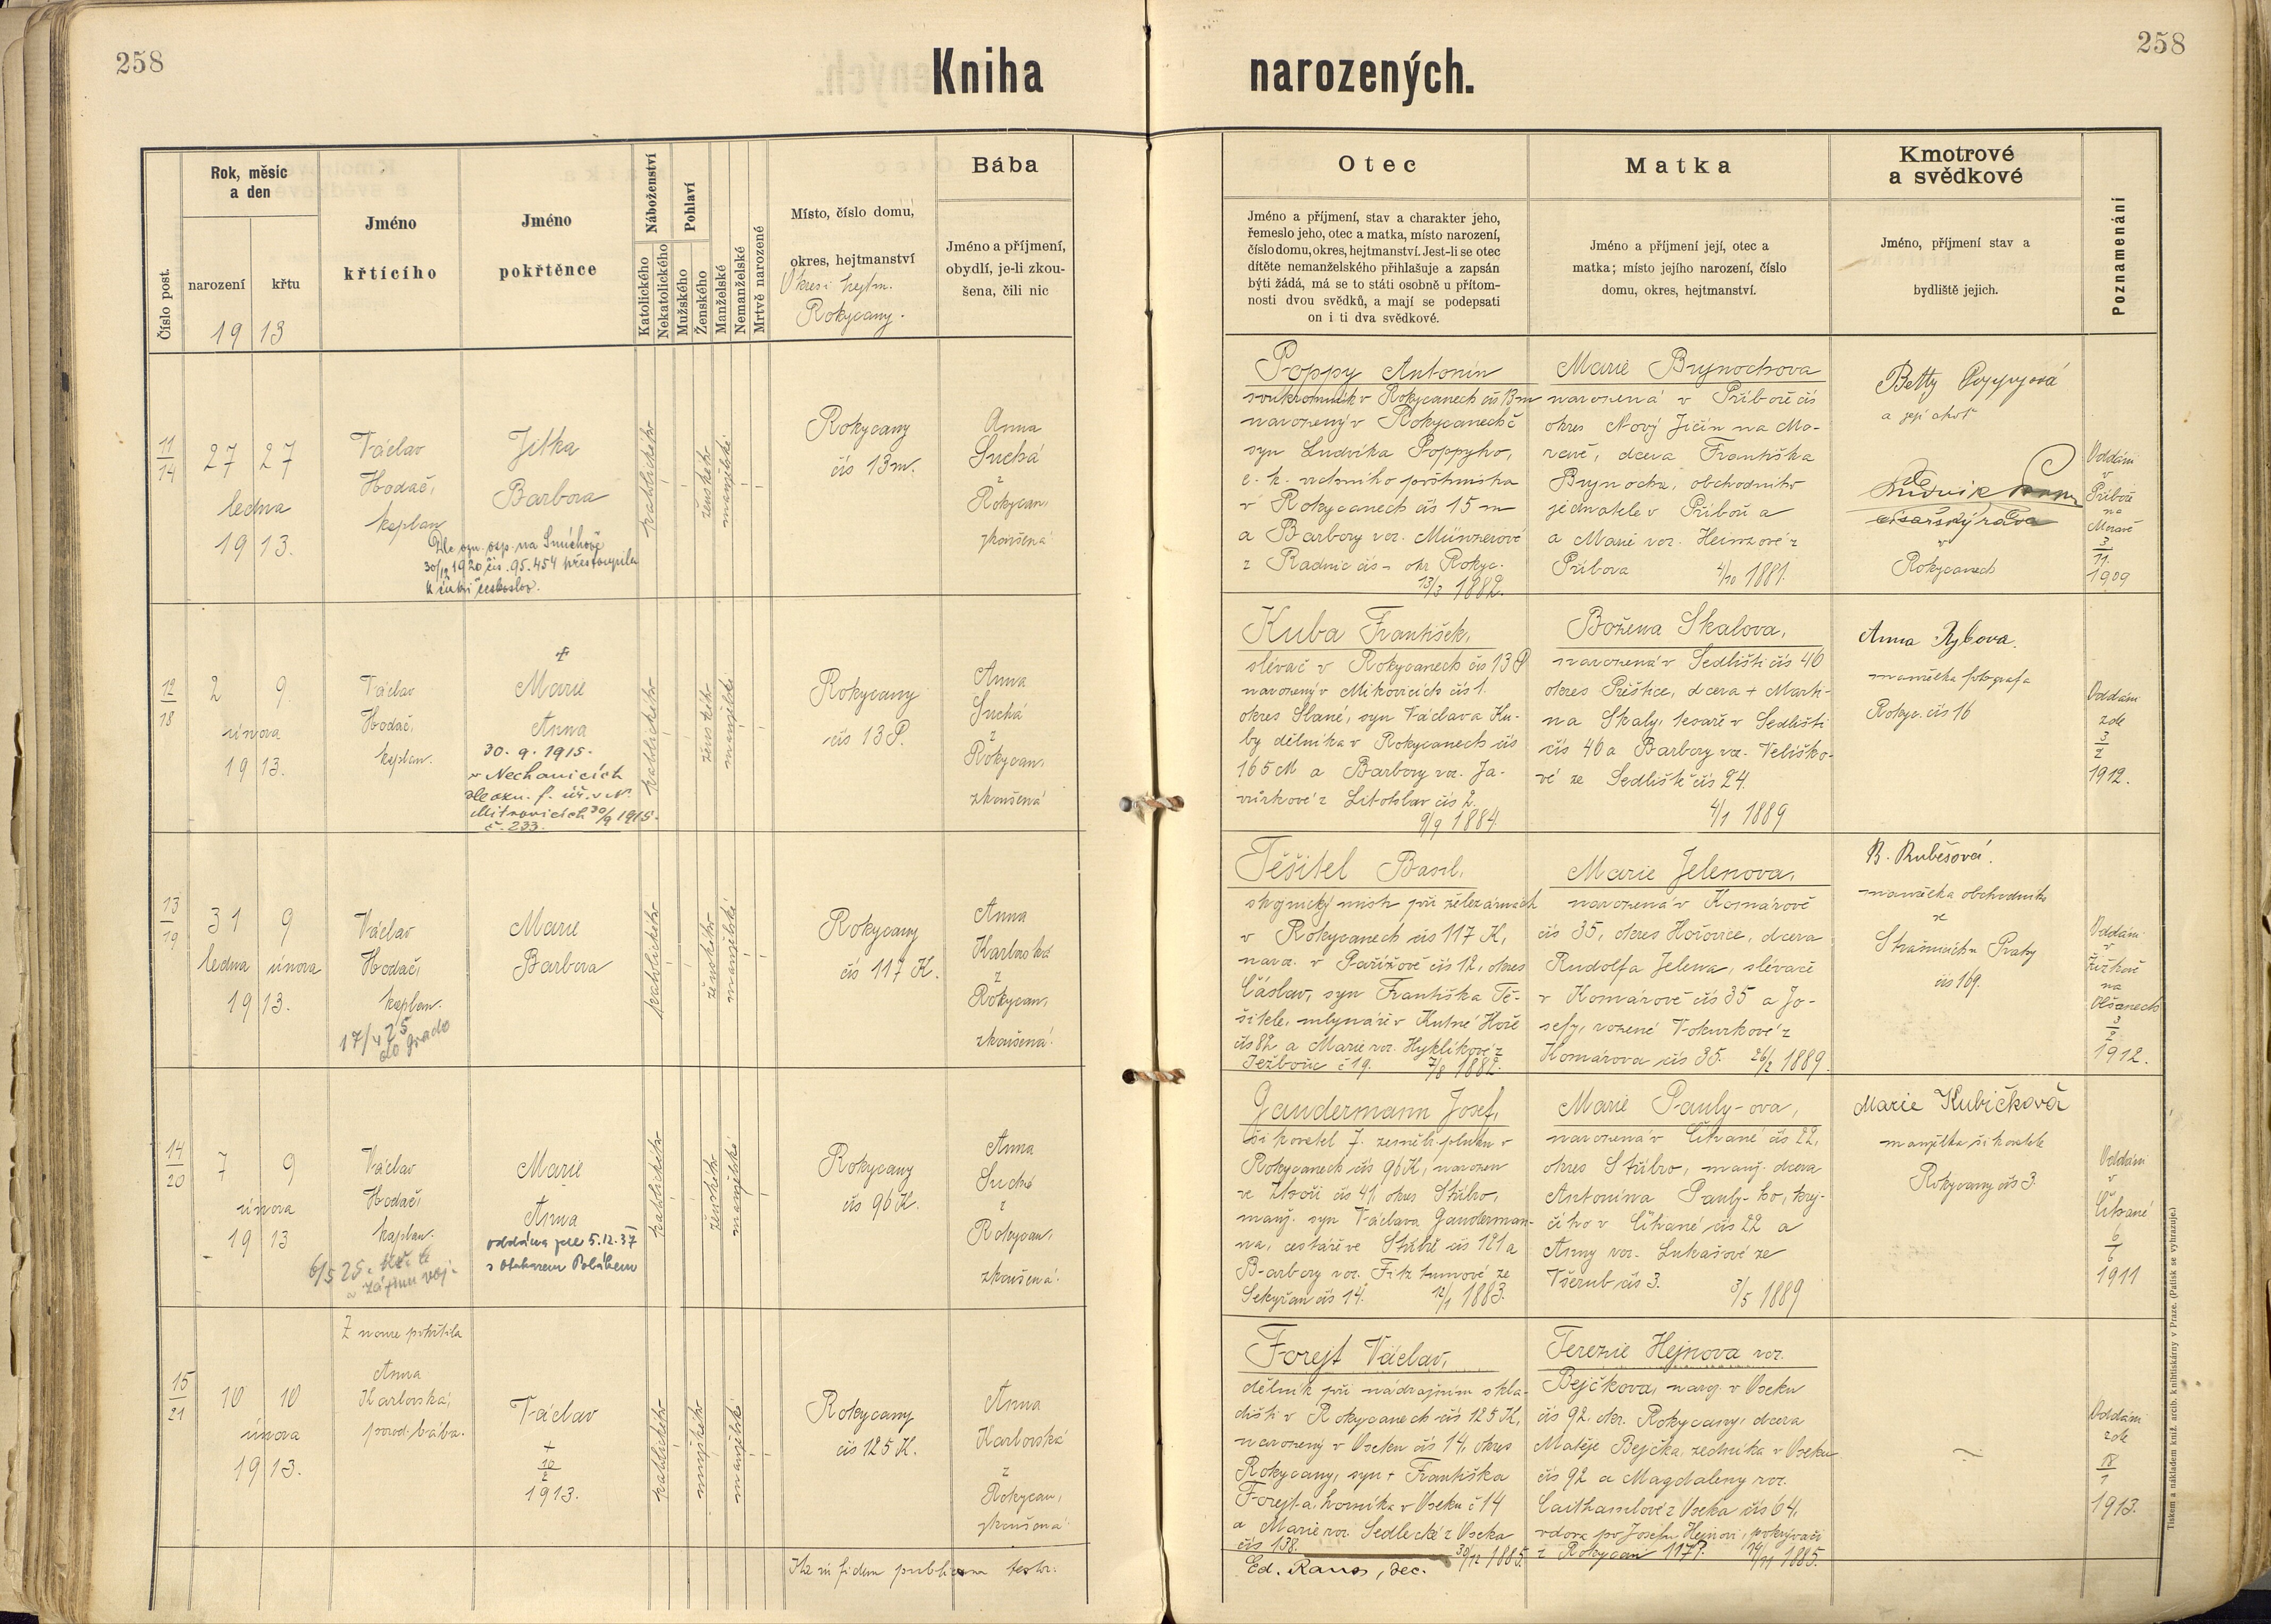 258
Kniha
narozených.
258
Číslo post.
Rok, měsíc
a den
narození
křtu
19 13
Jméno
křtícího
Jméno
pokřtěnce
Náboženství
Katolického
Nekatolického
Pohlaví
Mužského
Ženského
Manželské
Nemanželské
Mrtvě narozené
Místo, číslo domu,
okres, hejtmanství
Okres i hejtm.
Rokycany.
Bába
Jméno a příjmení,
obydlí, je-li zkou-
šena, čili nic
Otec
Jméno a příjmení, stav a charakter jeho,
řemeslo jeho, otec a matka, místo narození,
číslo domu, okres, hejtmanství. Jest-li se otec
dítěte nemanželského přihlašuje a zapsán
býti žádá, má se to státi osobně u přítom-
nosti dvou svědků, a mají se podepsati
on i ti dva svědkové.
Matka
Jméno a příjmení její, otec a
matka; místo jejího narození, číslo
domu, okres, hejtmanství.
Kmotrové
a svědkové
Jméno, příjmení stav a
bydliště jejich.
Poznamenání
11
14
27 27
ledna
19 13.
Václav
Hodač,
kaplan
Jitka
Barbora
Dle ozn. osp. na Smíchově
30/12 1920 čis. 95.454 přestoupila
k církvi českoslov.
katolického
ženského
manželské
Rokycany
čís 13 m.
Anna
Suchá
z
Rokycan,
zkoušená
Poppy Antonín
soukromník v Rokycanech čís 13 m
narozený v Rokycanech č
syn Ludvíka Poppyho,
c. k. vrchního poštmistra
v Rokycanech čís 15 m
a Barbory roz. Münzerové
z Radnic čís – okr. Rokyc.
13/3 1882.
Marie Brynochova
narozená v Příboře čís
okres Nový Jičín na Mo-
ravě, dcera Františka
Brynocha, obchodníka
jednatele v Příboři a
a Marie roz. Heinzové z
Příbora 4/10 1881.
Betty Poppyová
a její choť
Ludvík
císařský rada
v
Rokycanech
Oddáni
v
Příboři
na
Moravě
3
11.
1909
12
18
2 9.
února
19 13.
Václav
Hodač,
kaplan.
+
Marie
Anna
30. 9. 1915.
v Nechanicích
dle ozn. f. úř. v N.
Mitrovicích 30/9 1915.
č. 233.
katolického
ženského
manželské
Rokycany
čís 13 P.
Anna
Suchá
z
Rokycan,
zkoušená
Kuba František,
slévač v Rokycanech čís 13 P
narozený v Mikovicích čís 1.
okres Slané, syn Václava Ku-
by dělníka v Rokycanech čís
165 M a Barbory roz. Ja-
vůrkové z Litohlav čís 2.
9/9 1884
Božena Skalova,
narozená v Sedlišti čís 40
okres Přeštice, dcera + Marti-
na Skaly, tesaře v Sedlišti
čís 40 a Barbory roz. Veliško-
vé ze Sedliště čís 24.
4/1 1889
Anna Rybova.
manželka fotografa
Rokyc. čís 16
Oddáni
zde
3
2
1912.
13
19
31 9
ledna února
19 13.
Václav
Hodač,
kaplan.
17/4 25
Marie
Barbora
katolického
ženského
manželské
Rokycany
čís 117 K.
Anna
Karlovská
z
Rokycan,
zkoušená.
Těšitel Basil,
strojnický mistr při železárnách
v Rokycanech čís 117 K,
naroz. v Pařížově čís 12, okres
Čáslav, syn Františka Tě-
šitele, mlynáře v Kutné Hoře
čís 82 a Marie roz. Hyklíkové z
č 19. 7/8 1882.
Marie Jelenova,
narozená v Komárově
čís 35, okres Hořovice, dcera
Rudolfa Jelena, slévače
v Komárově čís 35 a Jo-
sefy, rozené Vokurkové z
Komárova čís 35. 26/2 1889.
B. Kubešová.
manželka obchodníka
ze
Strašnic u Prahy
čís 169.
Oddáni
v
Žižkově
na
Olšanech
3
2
1912.
14
20
7 9
února
19 13
Václav
Hodač,
kaplan.
6/5 25.
Marie
Anna
oddána dne 5.12.37
s Otakarem Polákem
katolického
ženského
manželské
Rokycany
čís 96 K.
Anna
Suchá
z
Rokycan,
zkoušená.
Gaudermann Josef,
šikovatel 7. zeměb. pluku v
Rokycanech čís 96 K, narozen
ve Zhoři čís 41, okres Stříbro,
manž. syn Václava Gauderman-
na, cestáře ve Stříbře čís 121 a
Barbory roz. ze
Sekyřan čís 14. 12/1 1883.
Marie Pauly-ova,
narozená v Čihané čís 22,
okres Stříbro, manž. dcera
Antonína Pauly-ho, krej-
čího v Čihané čís 22 a
Anny roz. Lukašové ze
Všerub čís 3. 3/5 1889
Marie Kubičková
manželka šikovatele
Rokycany čís 3.
Oddáni
v
Čihané
6
6
1911
15
21
10 10
února
19 13.
Z nouze pokřtila
Anna
Karlovská,
porod. bába.
Václav
+
10
2
1913.
katolického
mužského
manželské
Rokycany
čís 125 K.
Anna
Karlovská
z
Rokycan,
zkoušená
Forejt Václav,
dělník při nádražním skla-
dišti v Rokycanech čís 125 K,
narozený v Oseku čís 14, okres
Rokycany, syn + Františka
Forejta, horníka v Oseku č 14
a Marie roz. Sedlecké z Oseka
čís 138. 30/12 1885.
Terezie Hejnova roz.
Bejčkova, naroz. v Oseku
čís 92, okr. Rokycany, dcera
Matěje Bejčka, zedníka v Oseku
čís 92 a Magdaleny roz.
Caithamlové z Oseka čís 64,
vdova po Josefu Hejnovi, pokrývači
z Rokycan 117?. 1885.
Oddáni
zde
18
1
1913.
Ita in fidem publicam testor:
Ed. Raus, děc.
Tiskem a nákladem kníž. arcib. knihtiskárny v Praze. (Patisk se vyhrazuje.)